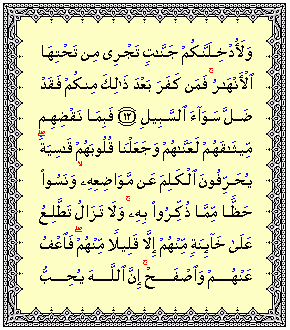 وَلَأُدْخِلَنَّكُمْ جَنَّٰتٍ تَجْرِى مِن تَحْتِهَا
ٱلْأَنْهَٰرُ ۚ فَمَن كَفَرَ بَعْدَ ذَٰلِكَ مِنكُمْ فَقَدْ
ضَلَّ سَوَآءَ ٱلسَّبِيلِ ﴿١٢﴾ فَبِمَا نَقْضِهِم
مِّيثَٰقَهُمْ لَعَنَّٰهُمْ وَجَعَلْنَا قُلُوبَهُمْ قَٰسِيَةً ۖ
يُحَرِّفُونَ ٱلْكَلِمَ عَن مَّوَاضِعِهِۦ ۙ وَنَسُوا۟
حَظًّا مِّمَّا ذُكِّرُوا۟ بِهِۦ ۚ وَلَا تَزَالُ تَطَّلِعُ
عَلَىٰ خَآئِنَةٍ مِّنْهُمْ إِلَّا قَلِيلًا مِّنْهُمْ ۖ فَٱعْفُ
عَنْهُمْ وَٱصْفَحْ ۚ إِنَّ ٱللَّهَ يُحِبُّ